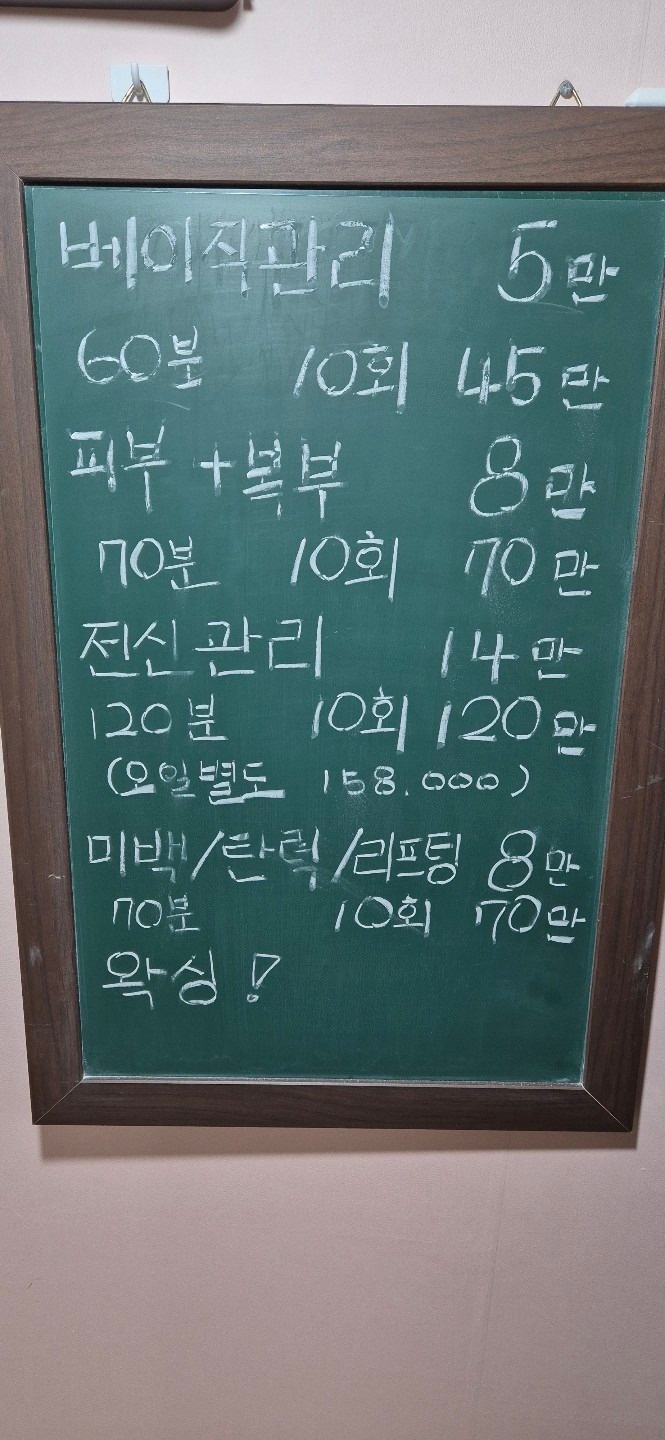 베이직관리 5만
60분 10회 45만
피부+복부 8만
70분 10회 70만
전신관리 14만
120분 10회 120만
(오일별도 158.000)
미백/탄력/리프팅 8만
70분 10회 70만
왁싱!